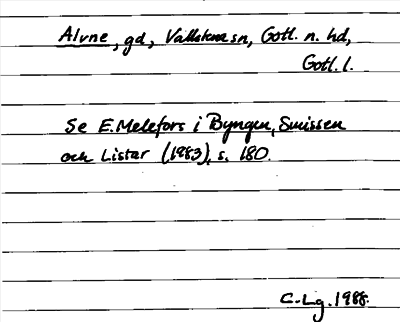 Alvne, gd, Vallstena sn, Gotl. n. hd,
Gotl. l.
Se E. Melefors i Byngen, Snissen
och Listar (1983), s. 180.
C.Lg. 1988.